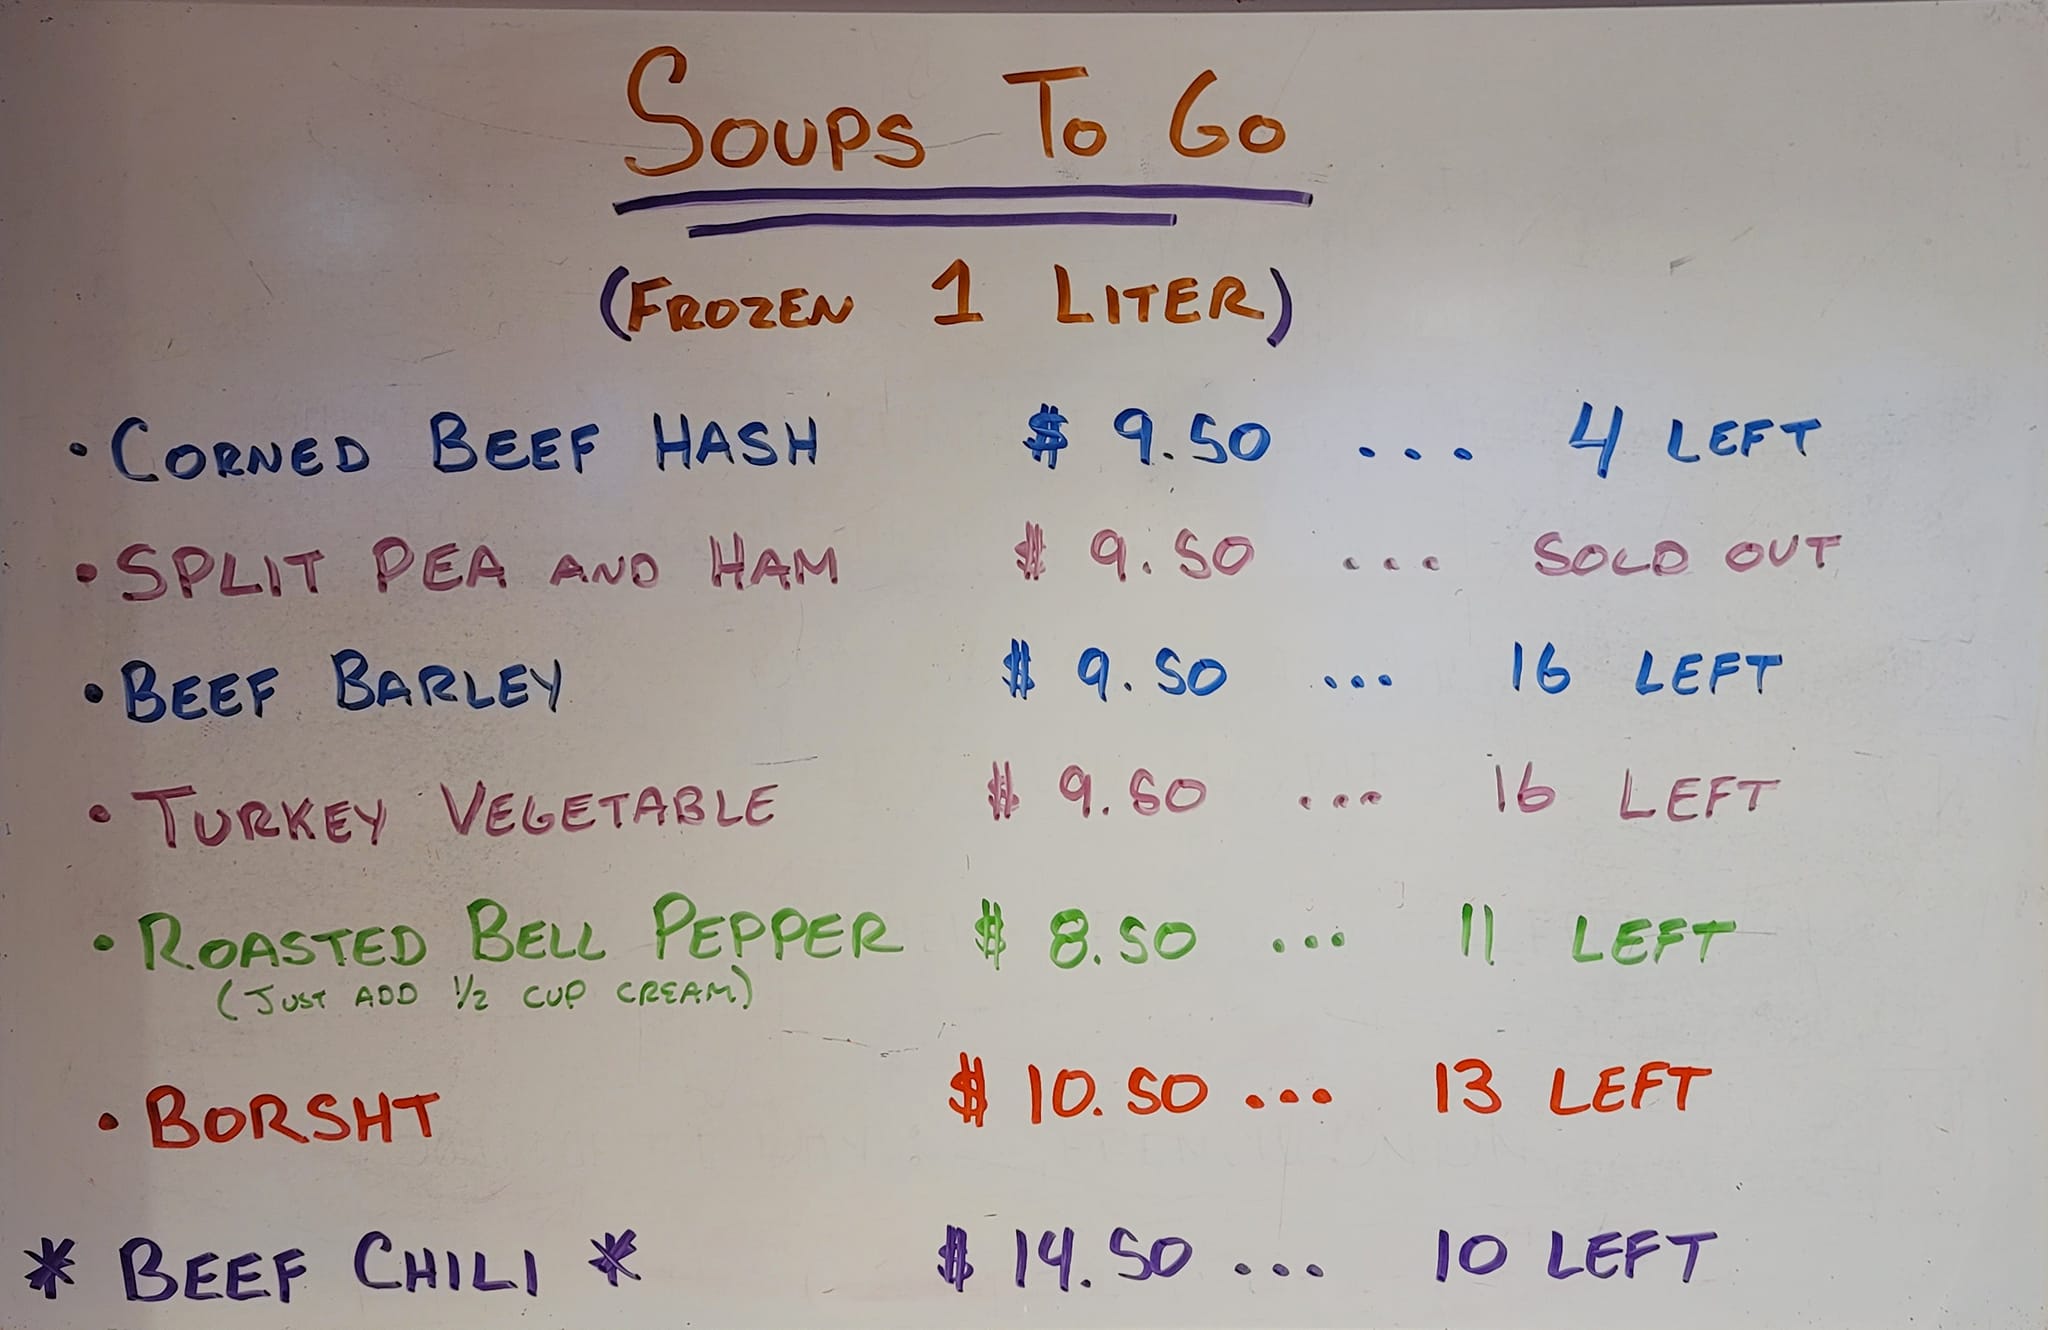 SOUPS TO GO
(FROZEN 1 LITER)
• CORNED BEEF HASH $ 9.50 ... 4 LEFT
• SPLIT PEA AND HAM $ 9.50 ... SOLD OUT
• BEEF BARLEY $ 9.50 ... 16 LEFT
• TURKEY VEGETABLE $ 9.50 ... 16 LEFT
• ROASTED BELL PEPPER $ 8.50 ... 11 LEFT
(JUST ADD 1/2 CUP CREAM)
• BORSHT $ 10.50 ... 13 LEFT
* BEEF CHILI * $ 14.50 ... 10 LEFT